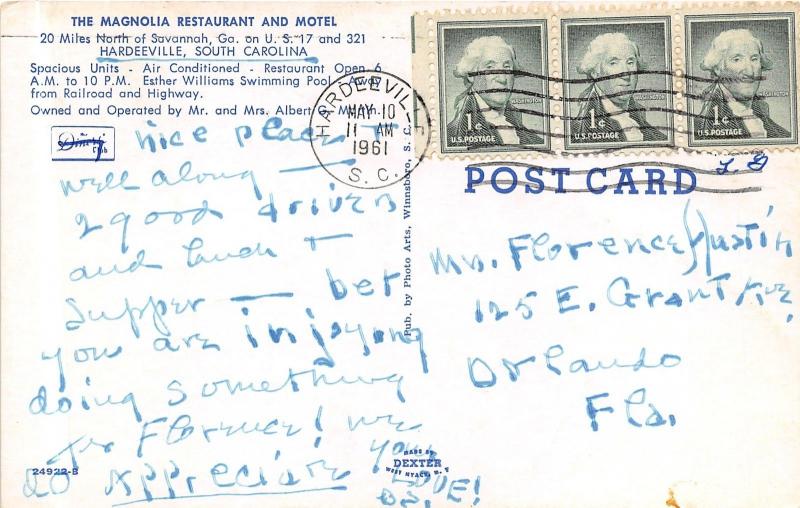 THE MAGNOLIA RESTAURANT AND MOTEL
20 Miles North of Savannah, Ga. on U. S. 17 and 321
HARDEEVILLE, SOUTH CAROLINA
Spacious Units - Air Conditioned - Restaurant Open 6
A.M. to 10 P.M. Esther Williams Swimming Pool - Away
from Railroad and Highway.
Owned and Operated by Mr. and Mrs. Albert G.
Diners' Club
nice place +
well along —
2 good drivers
and lunch +
supper — bet
you are injoying
doing something
for Florence! we
do appreciate
you
LOVE!
24922-B
Pub. by Photo Arts, Winnsboro, S. C.
MADE BY
DEXTER
WEST NYACK, N. Y.
HARDEEVILLE
MAY 10
11 AM
1961
S. C.
1¢ WASHINGTON U.S. POSTAGE
1¢ WASHINGTON U.S. POSTAGE
1¢ WASHINGTON U.S. POSTAGE
POST CARD
Mrs. Florence Austin
125 E. Grant Ave.
Orlando
Fla.